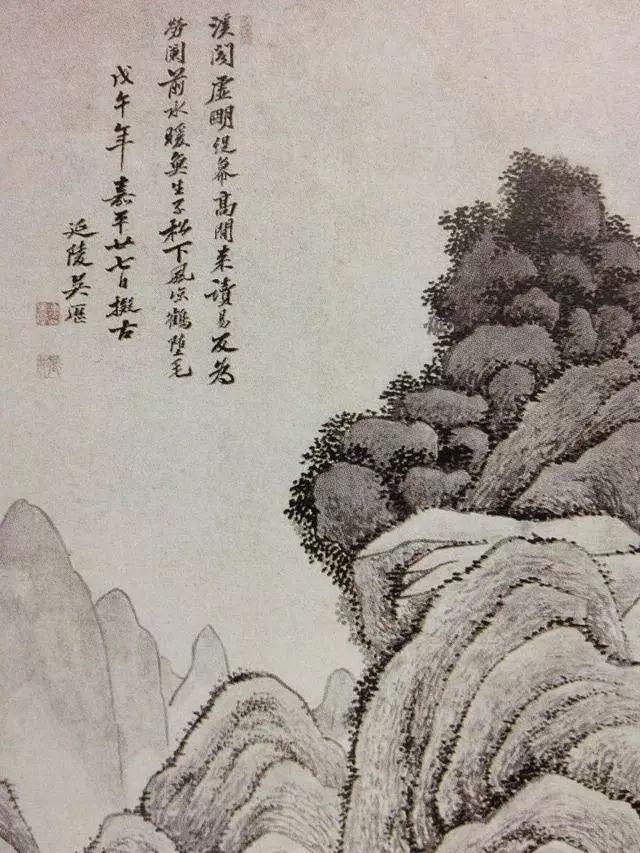 溪閣虛明幔幕高閒来讀易不為
勞闌前水暖魚生子松下風凉鶴墮毛
戊午年嘉平廿七日擬古
延陵吴歷